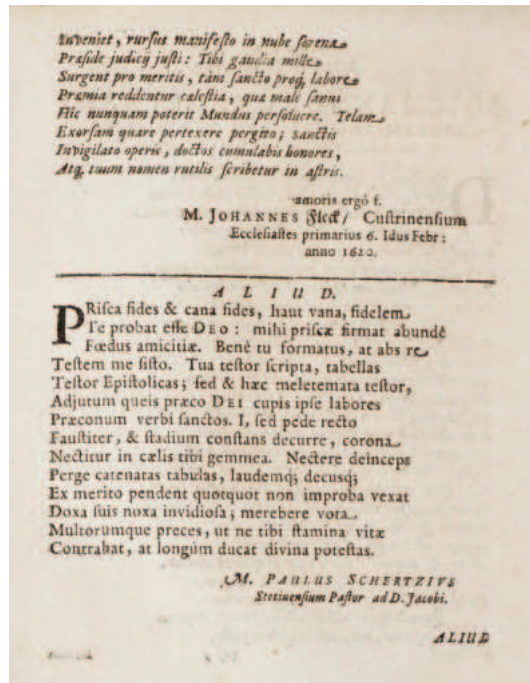 Inveniet, rursus manifesto in nube serena
Præside judicij justi: Tibi gaudia mille
Surgent pro meritis, tàm sancto proq́ labore
Præmia reddentur cælestia, quæ malè sanus
Hic nunquam poterit Mundus persolvere. Telam
Exorsam quare pertexere pergito; sanctis
Invigilato operis, doctos cumulabis honores,
Atq́ tuum nomen rutilis scribetur in astris.
amoris ergò f.
M. JOHANNES Fleck/ Custrinensium
Ecclesiastes primarius 6. Idus Febr:
anno 1620.
ALIUD.
PRisca fides & cana fides, haut vana, fidelem
Te probat esse DEO: mihi priscæ firmat abundè
Fœdus amicitiæ. Benè tu formatus, at abs re
Testem me sisto. Tua testor scripta, tabellas
Testor Epistolicas; sed & hæc meletemata testor,
Adjutum queis præco DEI cupis ipse labores
Præconum verbi sanctos. I, sed pede recto
Faustiter, & stadium constans decurre, corona
Nectitur in cælis tibi gemmea. Nectere deinceps
Perge catenatas tabulas, laudemq́; decusq́;
Ex merito pendent quotquot non improba vexat
Doxa suis noxa invidiosa; merebere vota
Multorumque preces, ut ne tibi stamina vitæ
Contrahat, at longùm ducat divina potestas.
M. PAULUS SCHERTZIUS
Stetinensium Pastor ad D. Jacobi.
ALIUD